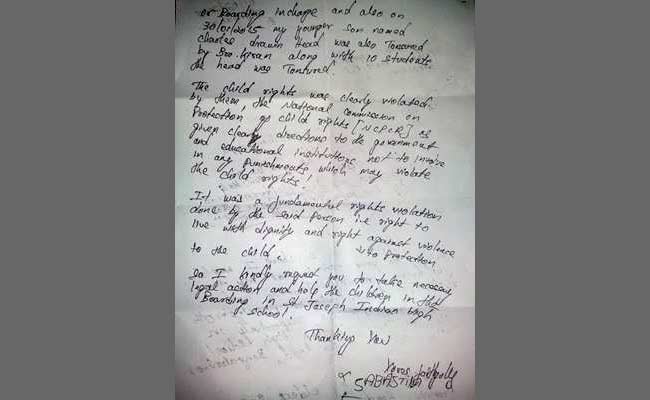 or Boarding incharge and also on
30/01/2015 my younger son named
charles drawn Head was also Tonsured
by Bro. Kiran along with 10 students
the head was Tontured.
The child rights was clearly violated
by them, the National commission on
Protection of child rights [NCPCR] is
given clearly directions to the government
and educational institutions not to involve
in any punishments which may violate
the child rights!
It was a fundamental rights violation
done by the said person i.e right to
live with dignity and right against violence
to the child. Protection
so I kindly request you to take necessary
legal action and help the children in the
Boarding in St Joseph Indian high
school.
Thanking You
Yours faithfully
SABASTIN